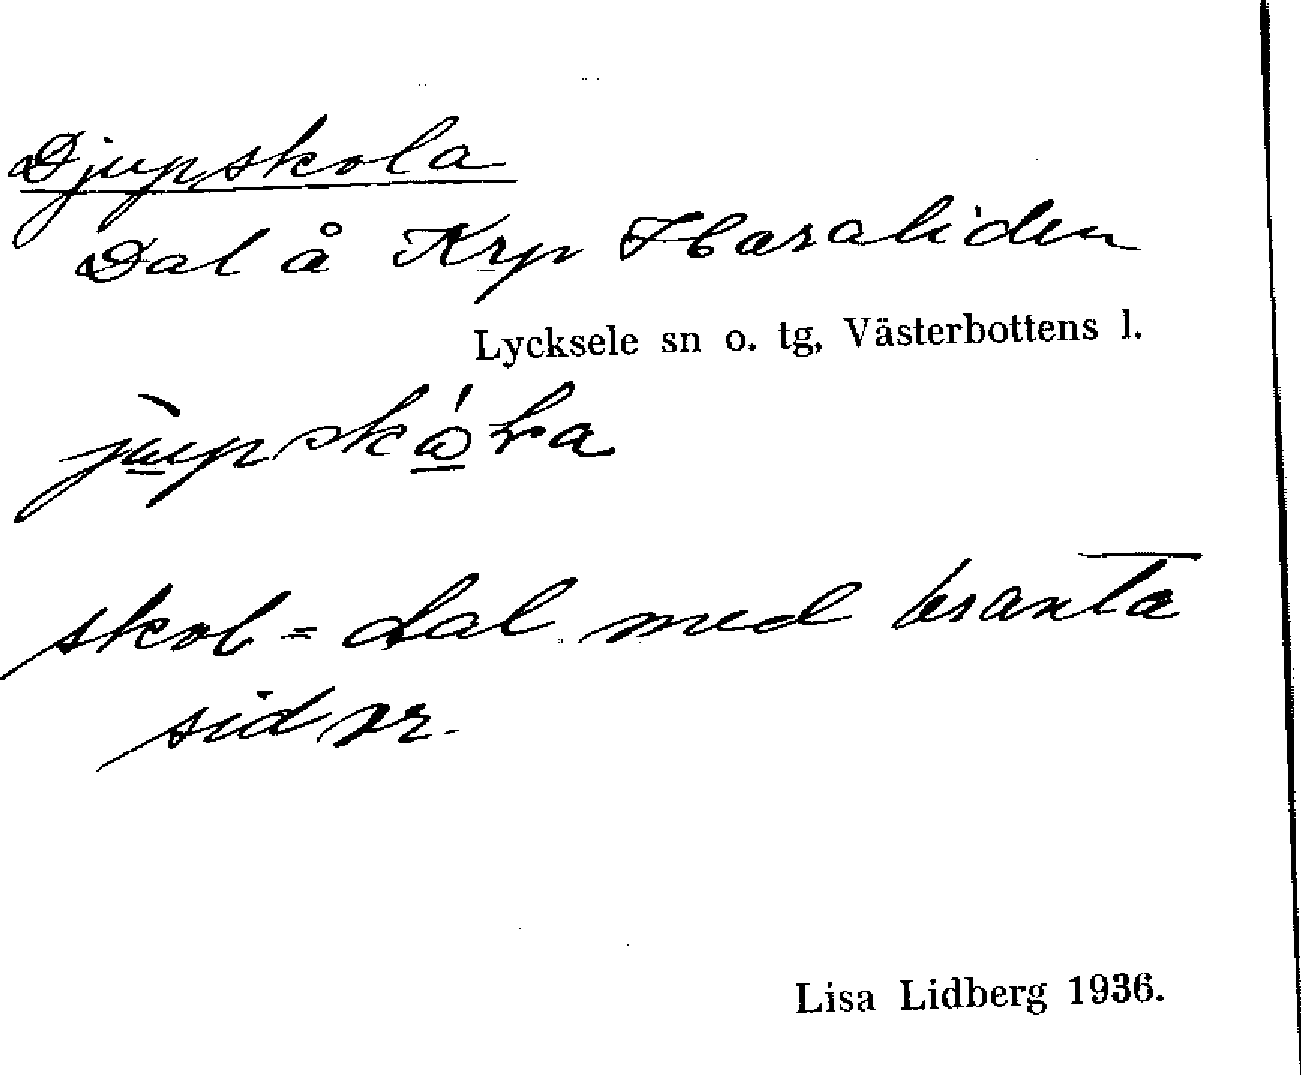 Djupskola
Dal å Krp Haraliden
Lycksele sn o. tg, Västerbottens l.
skol = dal med branta
sidor.
Lisa Lidberg 1936.